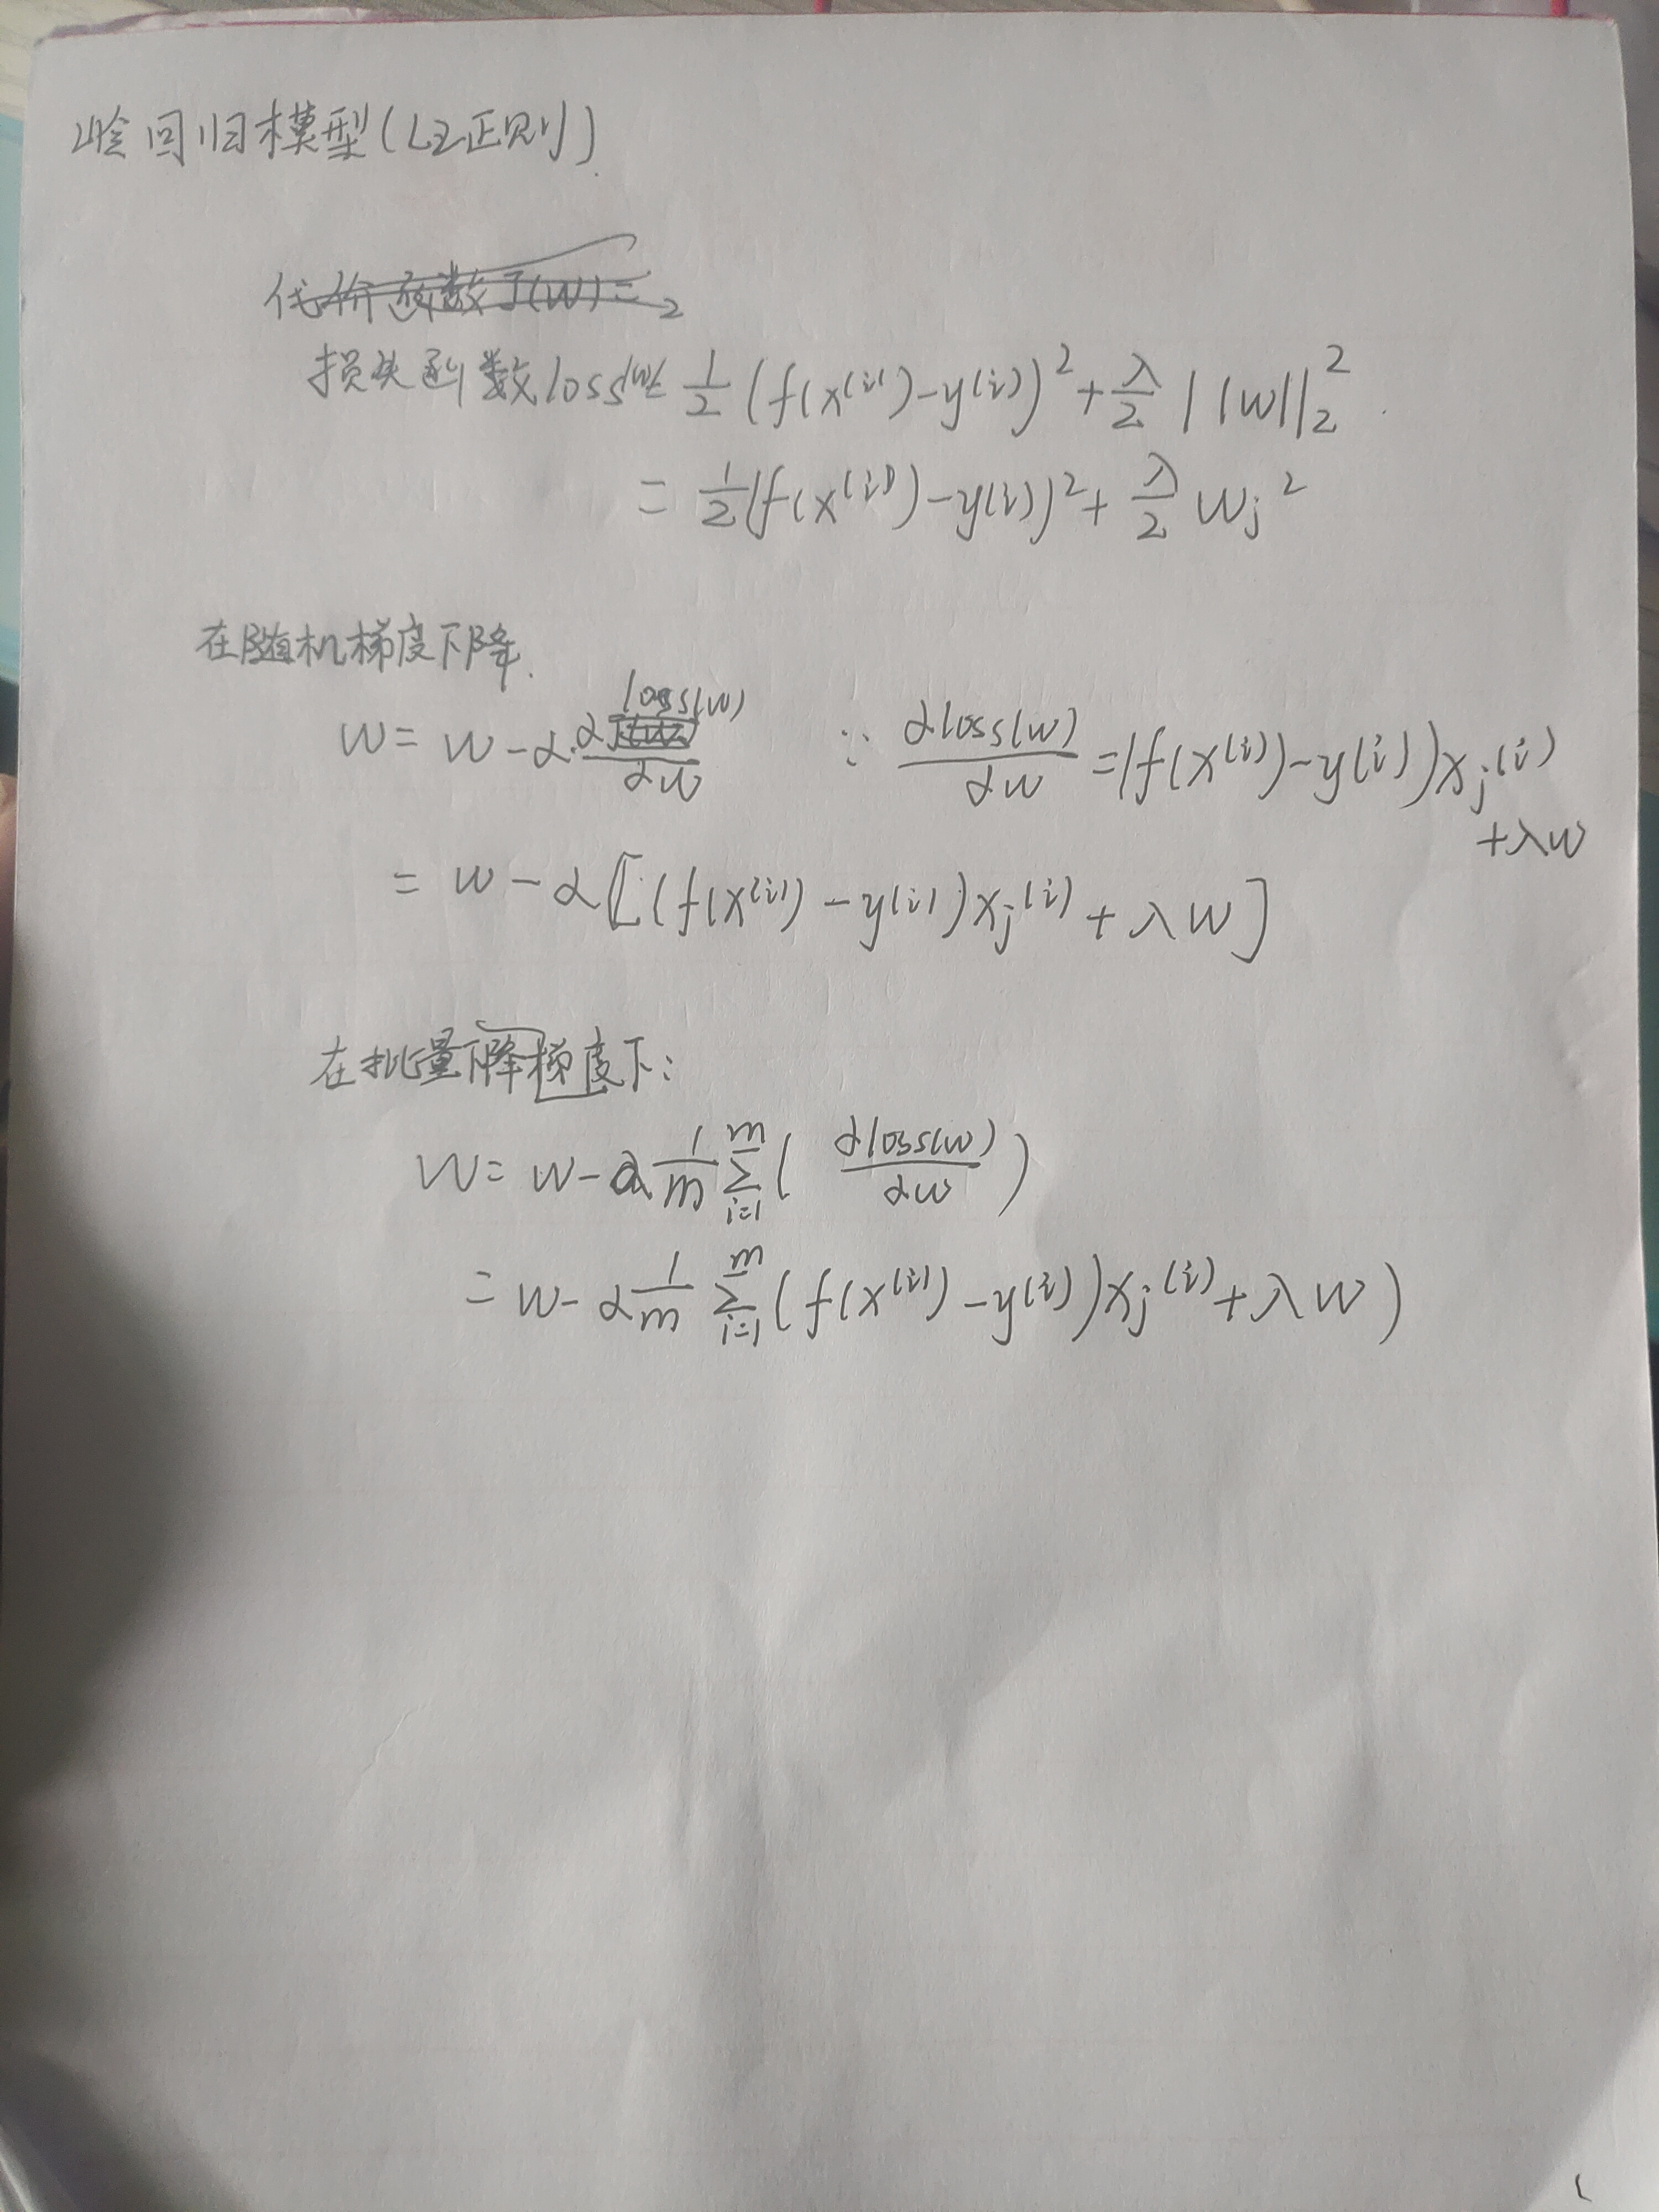 岭回归模型(L2正则)
代价函数J(w)=
损失函数loss(w)= 1/2 (f(x^(i))-y^(i))^2 + λ/2 ||w||_2^2
= 1/2 (f(x^(i))-y(i))^2 + λ/2 w_j^2
在随机梯度下降.
w= w-α·∂loss(w)/∂w ∵ ∂loss(w)/∂w =(f(x^(i))-y(i))x_j^(i)
+λw
= w-α[(f(x^(i))-y(i))x_j^(i)+λw]
在批量下降梯度下:
w= w-α 1/m Σ_{i=1}^m ( ∂loss(w)/∂w )
= w-α 1/m Σ_{i=1}^m (f(x^(i))-y^(i))x_j^(i)+λw)